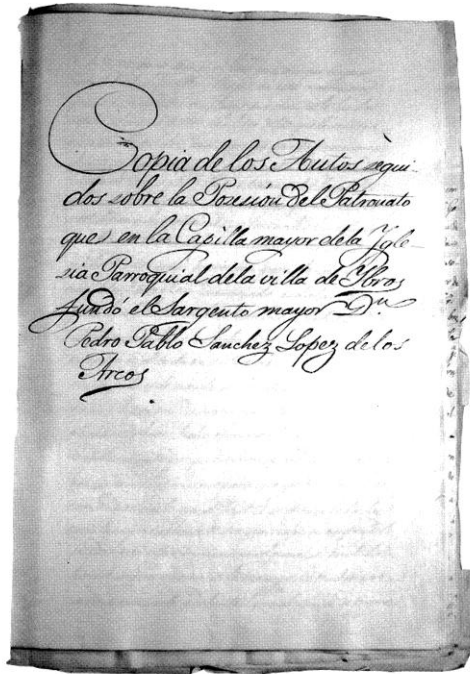 Copia de los Autos segui-
dos sobre la Posesión del Patronato
que en la Capilla mayor de la Ygle-
sia Parroquial de la villa de Ybros
fundó el Sargento mayor Dn.
Pedro Pablo Sanchez Lopez de los
Arcos